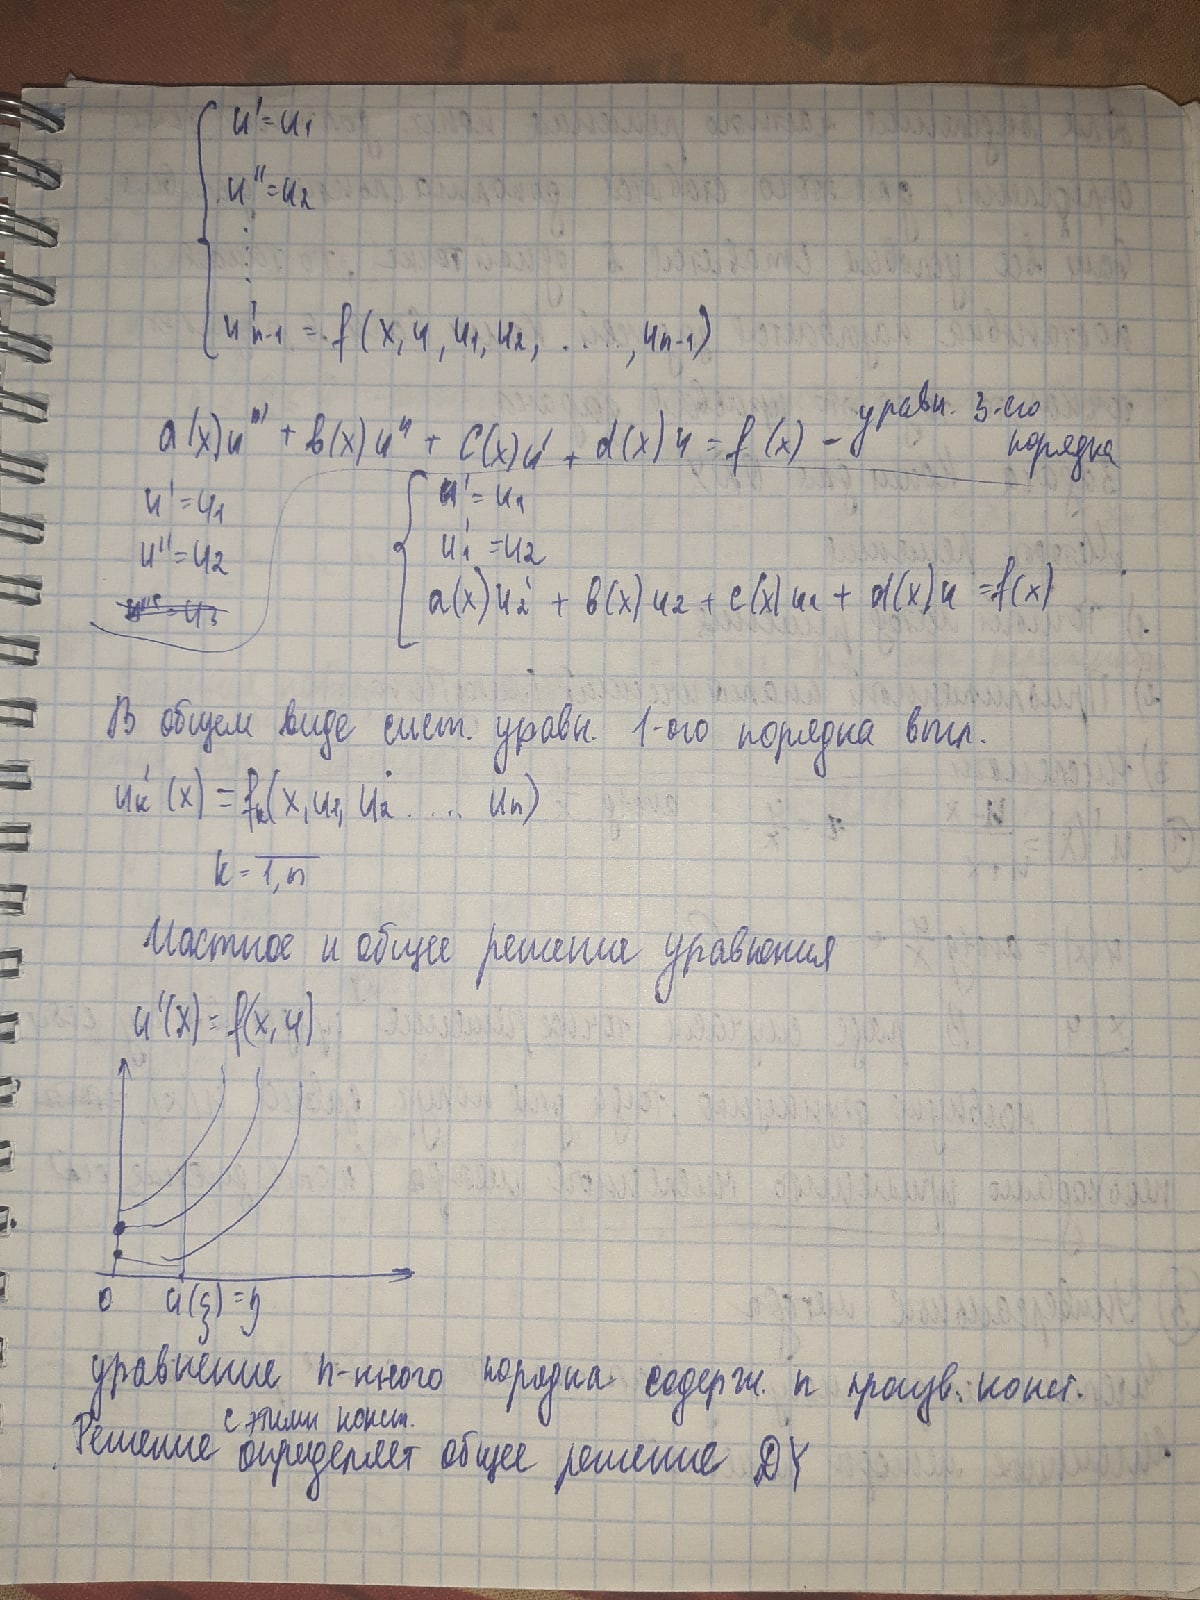 u' = u₁
u'' = u₂
⋮
u'ₙ₋₁ = f(x, u, u₁, u₂, ... , uₙ₋₁)
a(x)u''' + b(x)u'' + c(x)u' + d(x)u = f(x) - уравн. 3-его порядка
u' = u₁
u'' = u₂
u' = u₁
u₁' = u₂
a(x)u₂' + b(x)u₂ + c(x)u₁ + d(x)u = f(x)
В общем виде сист. уравн. 1-ого порядка выгл.
uₖ'(x) = fₖ(x, u₁, u₂ .... uₙ)
k = 1,n
Частное и общее решения уравнения
u'(x) = f(x, u)
0 u(ξ) = η
уравнение n-нного порядка содерж. n произв. конст.
с этими конст.
Решение определяет общее решение ДУ